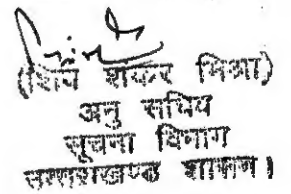 (शिव शंकर मिश्रा)
अनु सचिव
सूचना विभाग
उत्तराखण्ड शासन।